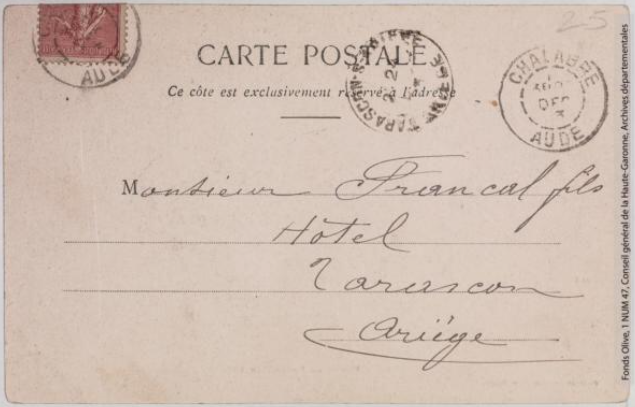 25
CARTE POSTALE
Ce côté est exclusivement réservé à l'adresse
AUDE
TARASCON-S-ARIEGE
CHALABRE
DEC
AUDE
Monsieur Francal fils
Hôtel
Tarascon
Ariège
Fonds Olive, 1 NUM 47, Conseil général de la Haute-Garonne, Archives départementales